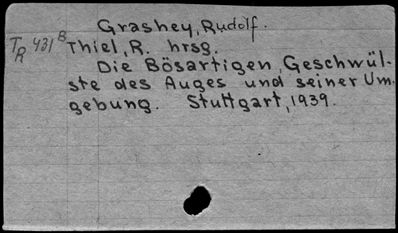 Grashey, Rudolf.
TR 431 B Thiel, R. hrsg.
Die Bösartigen Geschwül-
ste des Auges und seiner Um-
gebung. Stuttgart, 1939.